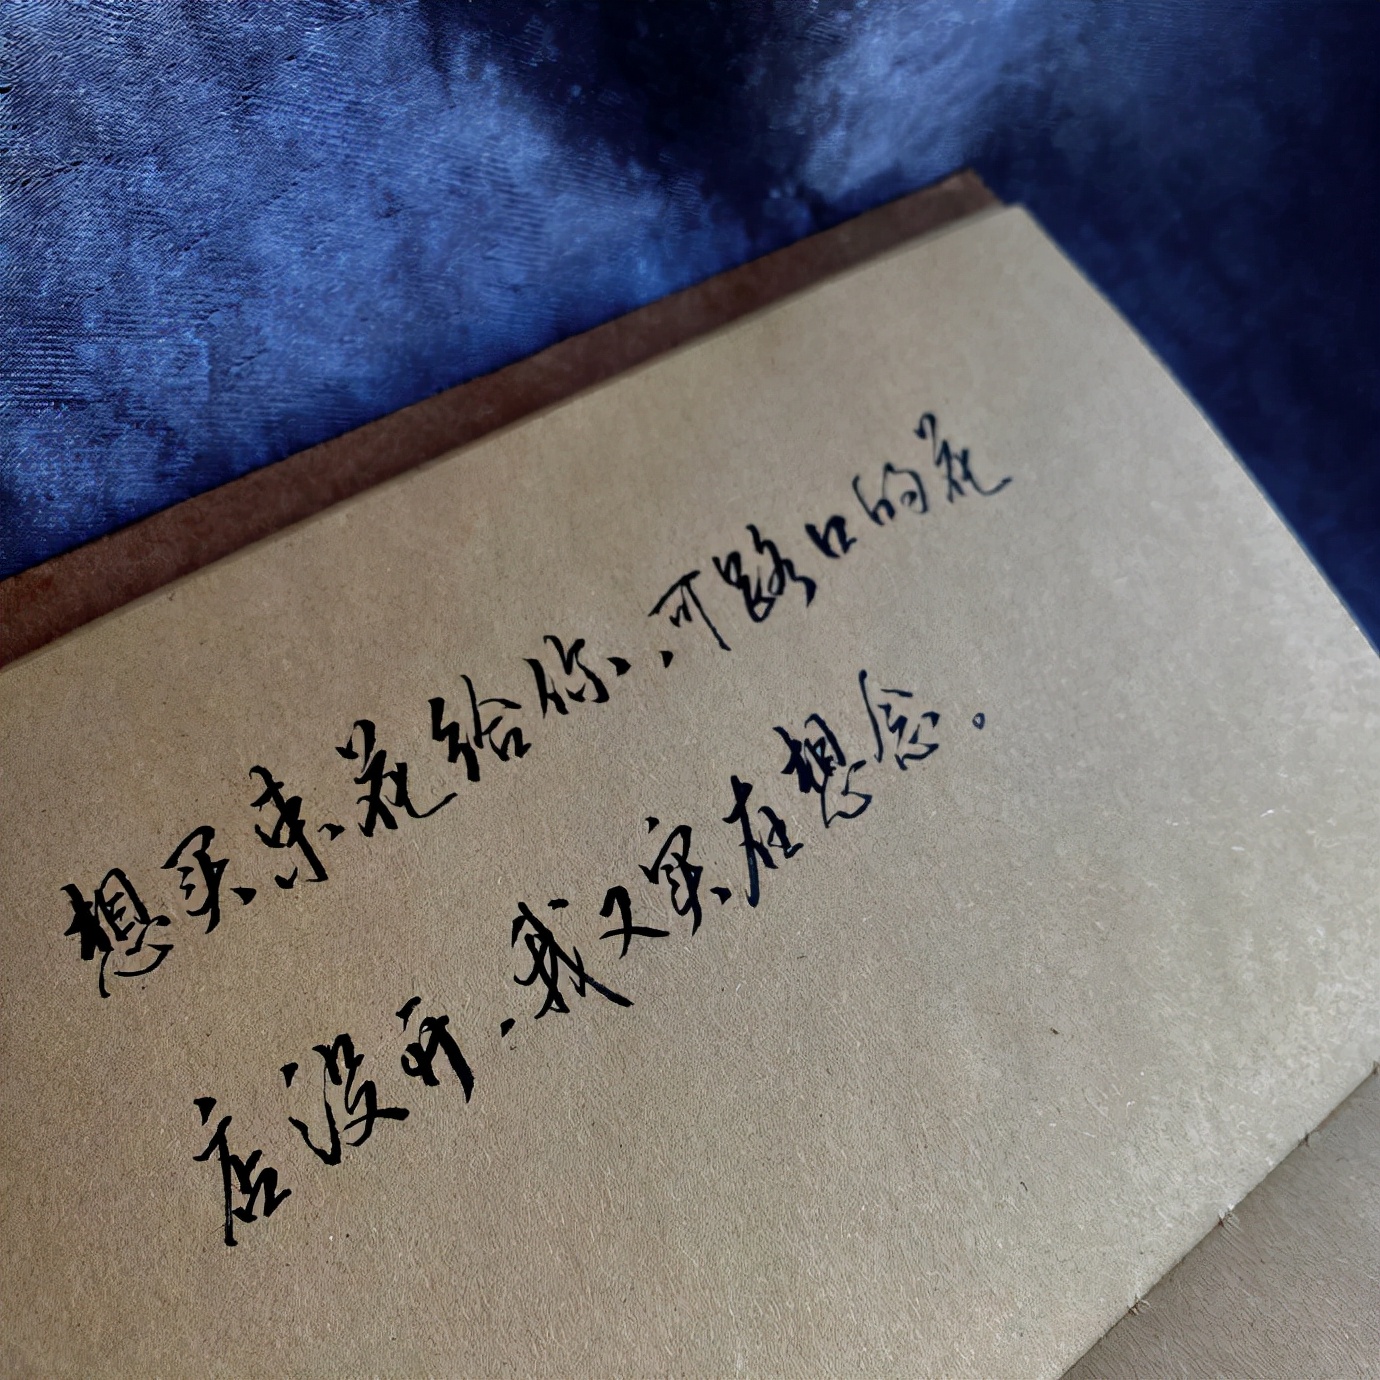 想买束花给你，可路口的花
店没开，我又实在想念。